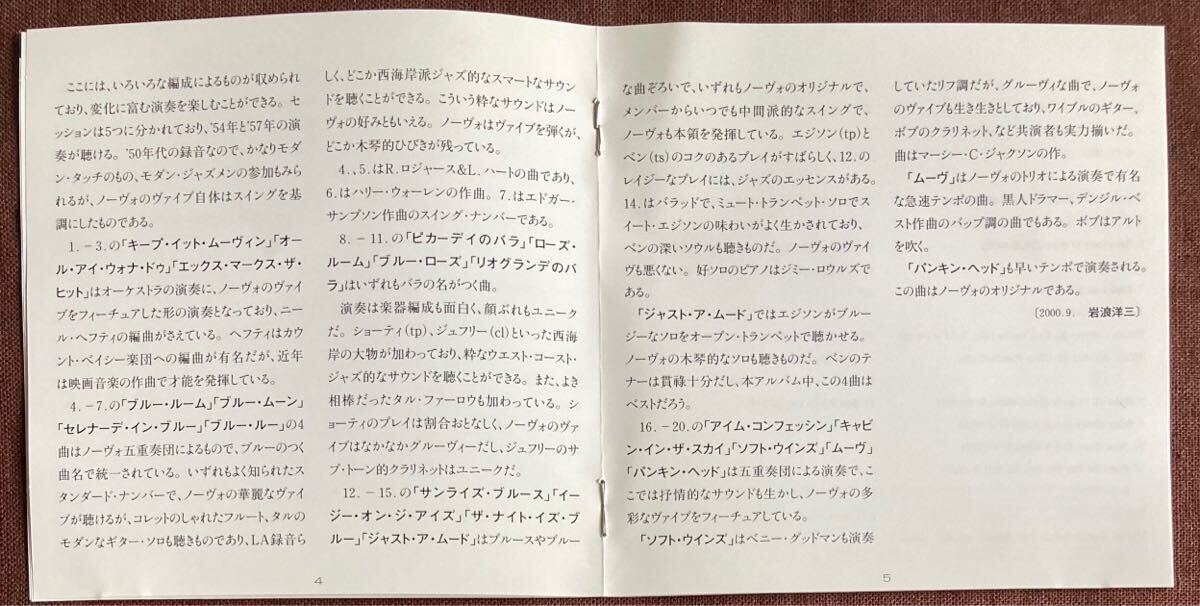 ここには、いろいろな編成によるものが収められ
ており、変化に富む演奏を楽しむことができる。セ
ッションは5つに分かれており、'54年と'57年の演
奏が聴ける。'50年代の録音なので、かなりモダ
ン・タッチのもの、モダン・ジャズメンの参加もみら
れるが、ノーヴォのヴァイブ自体はスイングを基
調にしたものである。
1.－3.の「キープ・イット・ムーヴィン」「オー
ル・アイ・ウォナ・ドゥ」「エックス・マークス・ザ・
ヒット」はオーケストラの演奏に、ノーヴォのヴァイ
ブをフィーチュアした形の演奏となっており、ニー
ル・ヘフティの編曲がさえている。ヘフティはカウ
ント・ベイシー楽団への編曲が有名だが、近年
は映画音楽の作曲で才能を発揮している。
4.－7.の「ブルー・ルーム」「ブルー・ムーン」
「セレナーデ・イン・ブルー」「ブルー・ルー」の4
曲はノーヴォ五重奏団によるもので、ブルーのつく
曲名で統一されている。いずれもよく知られたス
タンダード・ナンバーで、ノーヴォの華麗なヴァイ
ブが聴けるが、コレットのしゃれたフルート、タルの
モダンなギター・ソロも聴きものであり、LA録音ら
しく、どこか西海岸派ジャズ的なスマートなサウン
ドを聴くことができる。こういう粋なサウンドはノー
ヴォの好みともいえる。ノーヴォはヴァイブを弾くが、
どこか木琴的ひびきが残っている。
4.、5.はR.ロジャース&L.ハートの曲であり、
6.はハリー・ウォーレンの作曲。7.はエドガー・
サンプソン作曲のスイング・ナンバーである。
8.－11.の「ピカーデイのバラ」「ローズ・
ルーム」「ブルー・ローズ」「リオグランデのバ
ラ」はいずれもバラの名がつく曲。
演奏は楽器編成も面白く、顔ぶれもユニーク
だ。ショーティ(tp)、ジュフリー(cl)といった西海
岸の大物が加わっており、粋なウエスト・コースト・
ジャズ的なサウンドを聴くことができる。また、よき
相棒だったタル・ファーロウも加わっている。ショ
ーティのプレイは割合おとなしく、ノーヴォのヴァ
イブはなかなかグルーヴィーだし、ジュフリーのサ
ブ・トーン的クラリネットはユニークだ。
12.－15.の「サンライズ・ブルース」「イー
ジー・オン・ジ・アイズ」「ザ・ナイト・イズ・ブ
ルー」「ジャスト・ア・ムード」はブルースやブルー
4
な曲ぞろいで、いずれもノーヴォのオリジナルで、
メンバーからいつでも中間派的なスイングで、
ノーヴォも本領を発揮している。エジソン(tp)と
ベン(ts)のコクのあるプレイがすばらしく、12.の
レイジーなプレイには、ジャズのエッセンスがある。
14.はバラッドで、ミュート・トランペット・ソロでス
イート・エジソンの味わいがよく生かされており、
ベンの深いソウルも聴きものだ。ノーヴォのヴァイ
ヴも悪くない。好ソロのピアノはジミー・ロウルズで
ある。
「ジャスト・ア・ムード」ではエジソンがブルー
ジーなソロをオープン・トランペットで聴かせる。
ノーヴォの木琴的なソロも聴きものだ。ベンのテ
ナーは貫祿十分だし、本アルバム中、この4曲は
ベストだろう。
16.－20.の「アイム・コンフェッシン」「キャビ
ン・イン・ザ・スカイ」「ソフト・ウインズ」「ムーヴ」
「パンキン・ヘッド」は五重奏団による演奏で、こ
こでは抒情的なサウンドも生かし、ノーヴォの多
彩なヴァイブをフィーチュアしている。
「ソフト・ウインズ」はベニー・グッドマンも演奏
していたリフ調だが、グルーヴィな曲で、ノーヴォ
のヴァイブも生き生きとしており、ワイブルのギター、
ボブのクラリネット、など共演者も実力揃いだ。
曲はマーシー・C・ジャクソンの作。
「ムーヴ」はノーヴォのトリオによる演奏で有名
な急速テンポの曲。黒人ドラマー、デンジル・ベ
スト作曲のバップ調の曲でもある。ボブはアルト
を吹く。
「パンキン・ヘッド」も早いテンポで演奏される。
この曲はノーヴォのオリジナルである。
〔2000.9. 岩浪洋三〕
5